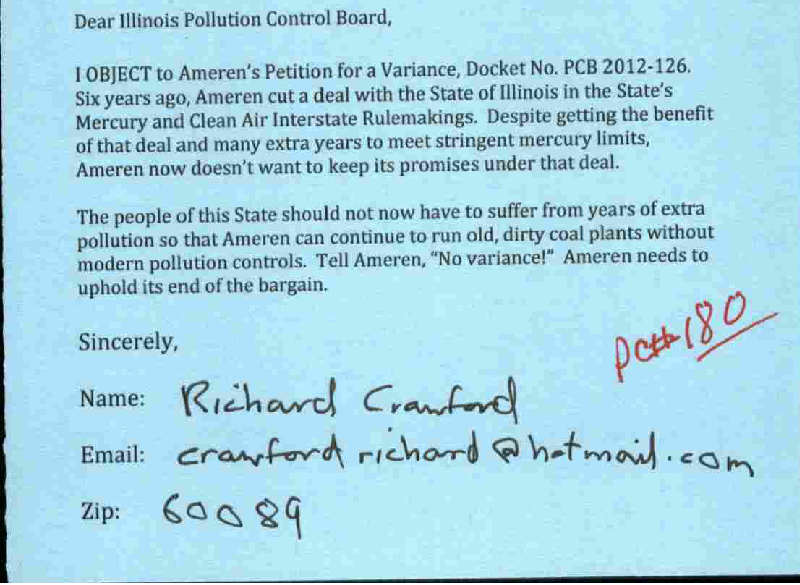 Dear Illinois Pollution Control Board,
I OBJECT to Ameren's Petition for a Variance, Docket No. PCB 2012-126.
Six years ago, Ameren cut a deal with the State of Illinois in the State's
Mercury and Clean Air Interstate Rulemakings.  Despite getting the benefit
of that deal and many extra years to meet stringent mercury limits,
Ameren now doesn't want to keep its promises under that deal.
The people of this State should not now have to suffer from years of extra
pollution so that Ameren can continue to run old, dirty coal plants without
modern pollution controls.  Tell Ameren, "No variance!"  Ameren needs to
uphold its end of the bargain.
PC#180
Sincerely,
Name: Richard Crawford
Email: crawford richard@hotmail.com
Zip: 60089